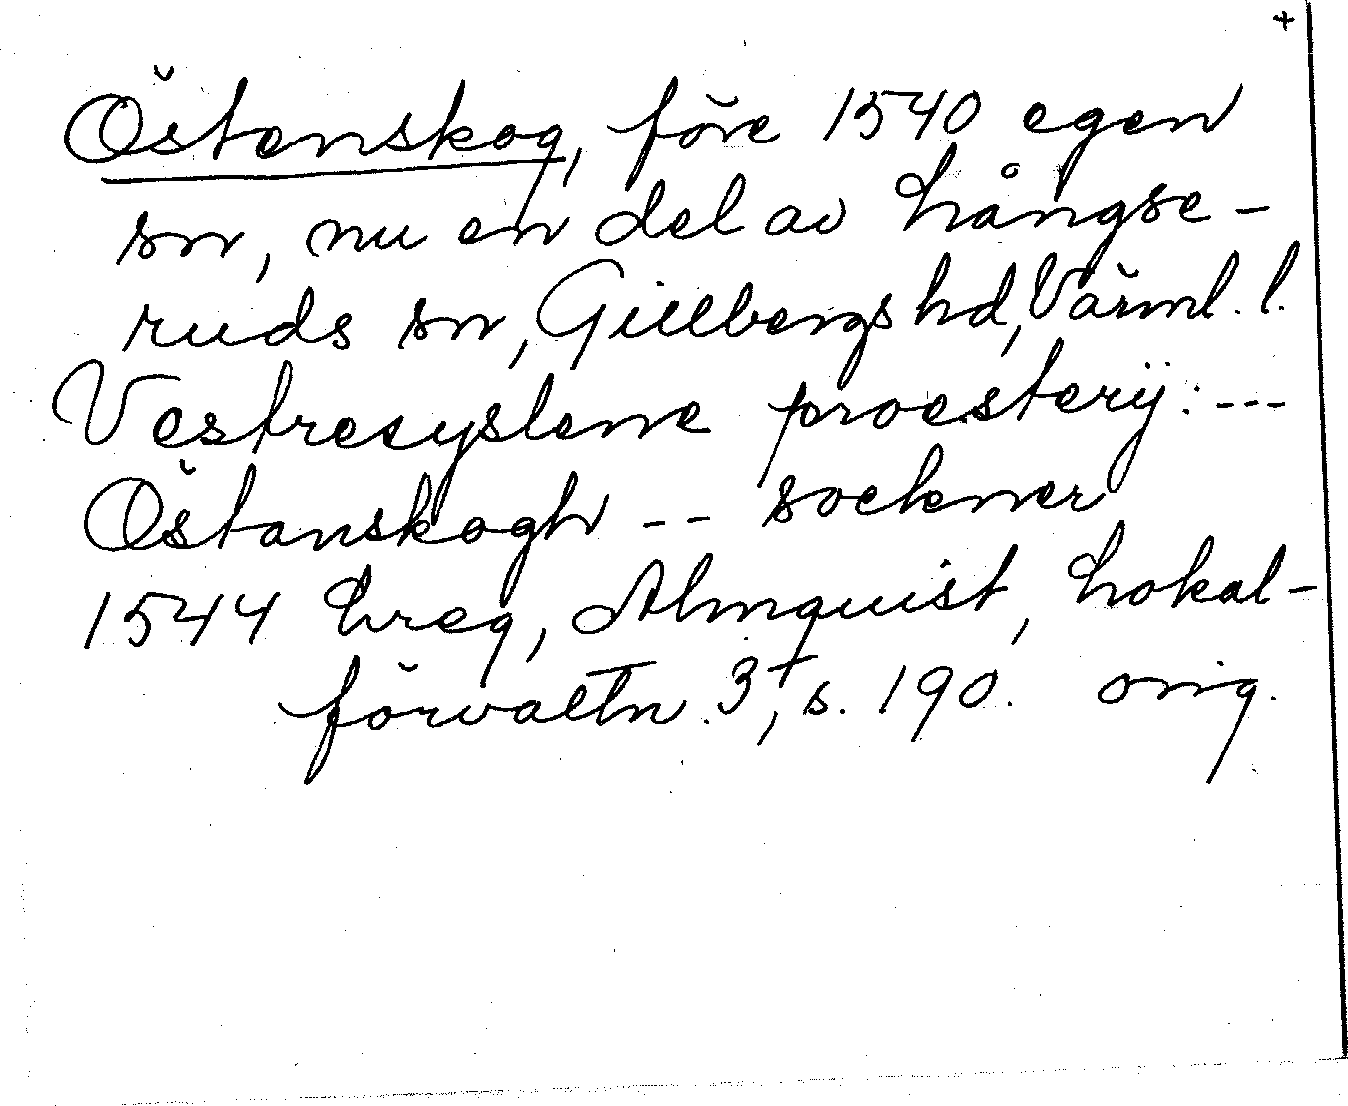 +
Östenskog, före 1540 egen
sn, nu en del av Långse-
ruds sn, Gillbergs hd, Värml. l.
Vestresyslene proesterij: ---
Östanskogh -- sockner
1544 Lreg, Almquist, Lokal-
förvaltn. 3, s. 190. orig.